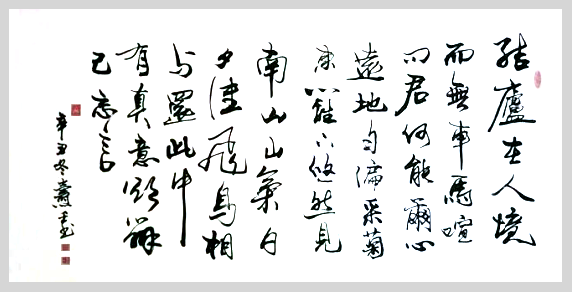 結廬在人境
而無車馬喧
问君何能爾心
遠地自偏采菊
東籬下悠然見
南山山氣日
夕佳飛鳥相
与還此中
有真意欲辯
已忘言
辛丑冬